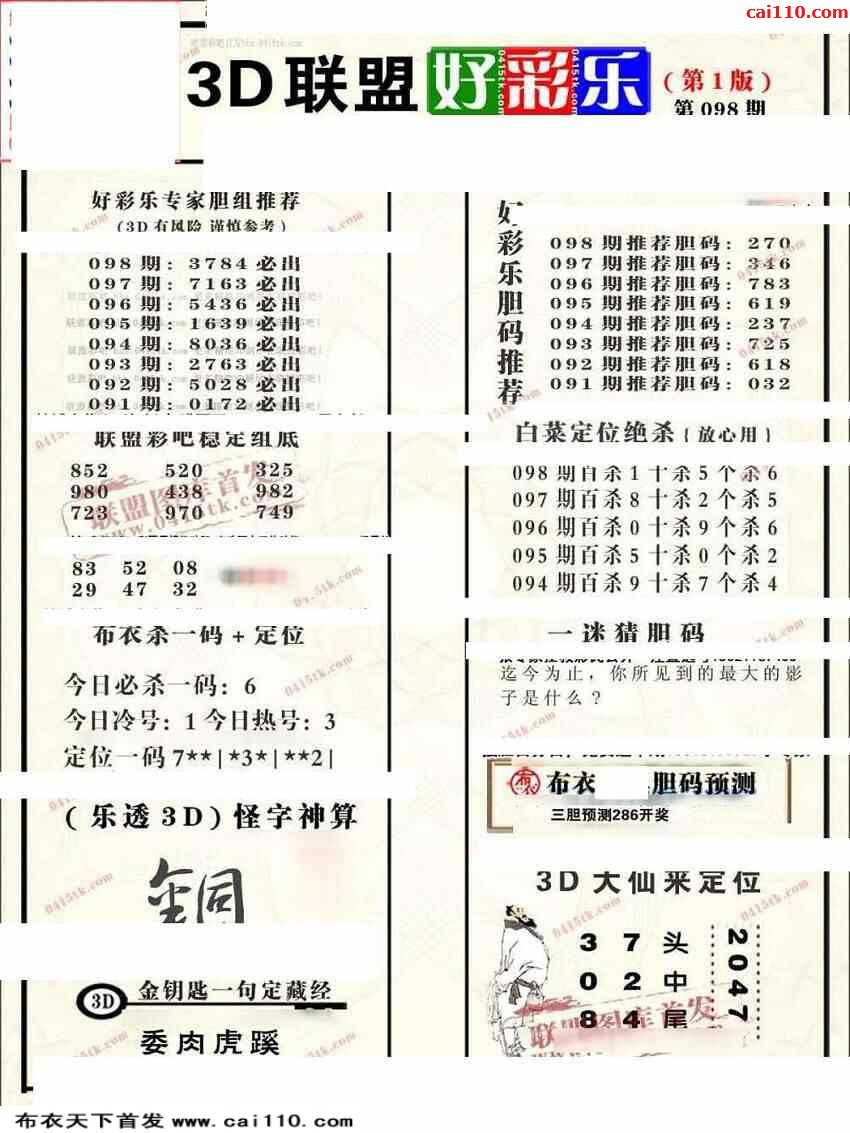 cai110.com
3D联盟好彩乐(第1版)
第098期
好彩乐专家胆组推荐
(3D有风险 谨慎参考)
098期:3784必出
097期:7163必出
096期:5436必出
095期:1639必出
094期:8036必出
093期:2763必出
092期:5028必出
091期:0172必出
联盟彩吧稳定组底
852 520 325
980 438 982
723 970 749
83 52 08
29 47 32
布衣杀一码+定位
今日必杀一码:6
今日冷号:1 今日热号:3
定位一码 7**|*3*|**2|
(乐透3D)怪字神算
铜
3D 金钥匙一句定藏经
委肉虎蹊
好彩乐胆码推荐
098期推荐胆码:270
097期推荐胆码:346
096期推荐胆码:783
095期推荐胆码:619
094期推荐胆码:237
093期推荐胆码:725
092期推荐胆码:618
091期推荐胆码:032
白菜定位绝杀{放心用}
098期百杀1十杀5个杀6
097期百杀8十杀2个杀5
096期百杀0十杀9个杀6
095期百杀5十杀0个杀2
094期百杀9十杀7个杀4
一迷猜胆码
迄今为止,你所见到的最大的影
子是什么?
布衣 布衣 胆码预测
三胆预测286开奖
3D大仙来定位
3 7 头
0 2 中
8 4 尾
2047
联盟图库首发
www.0415tk.com
布衣天下首发 www.cai110.com